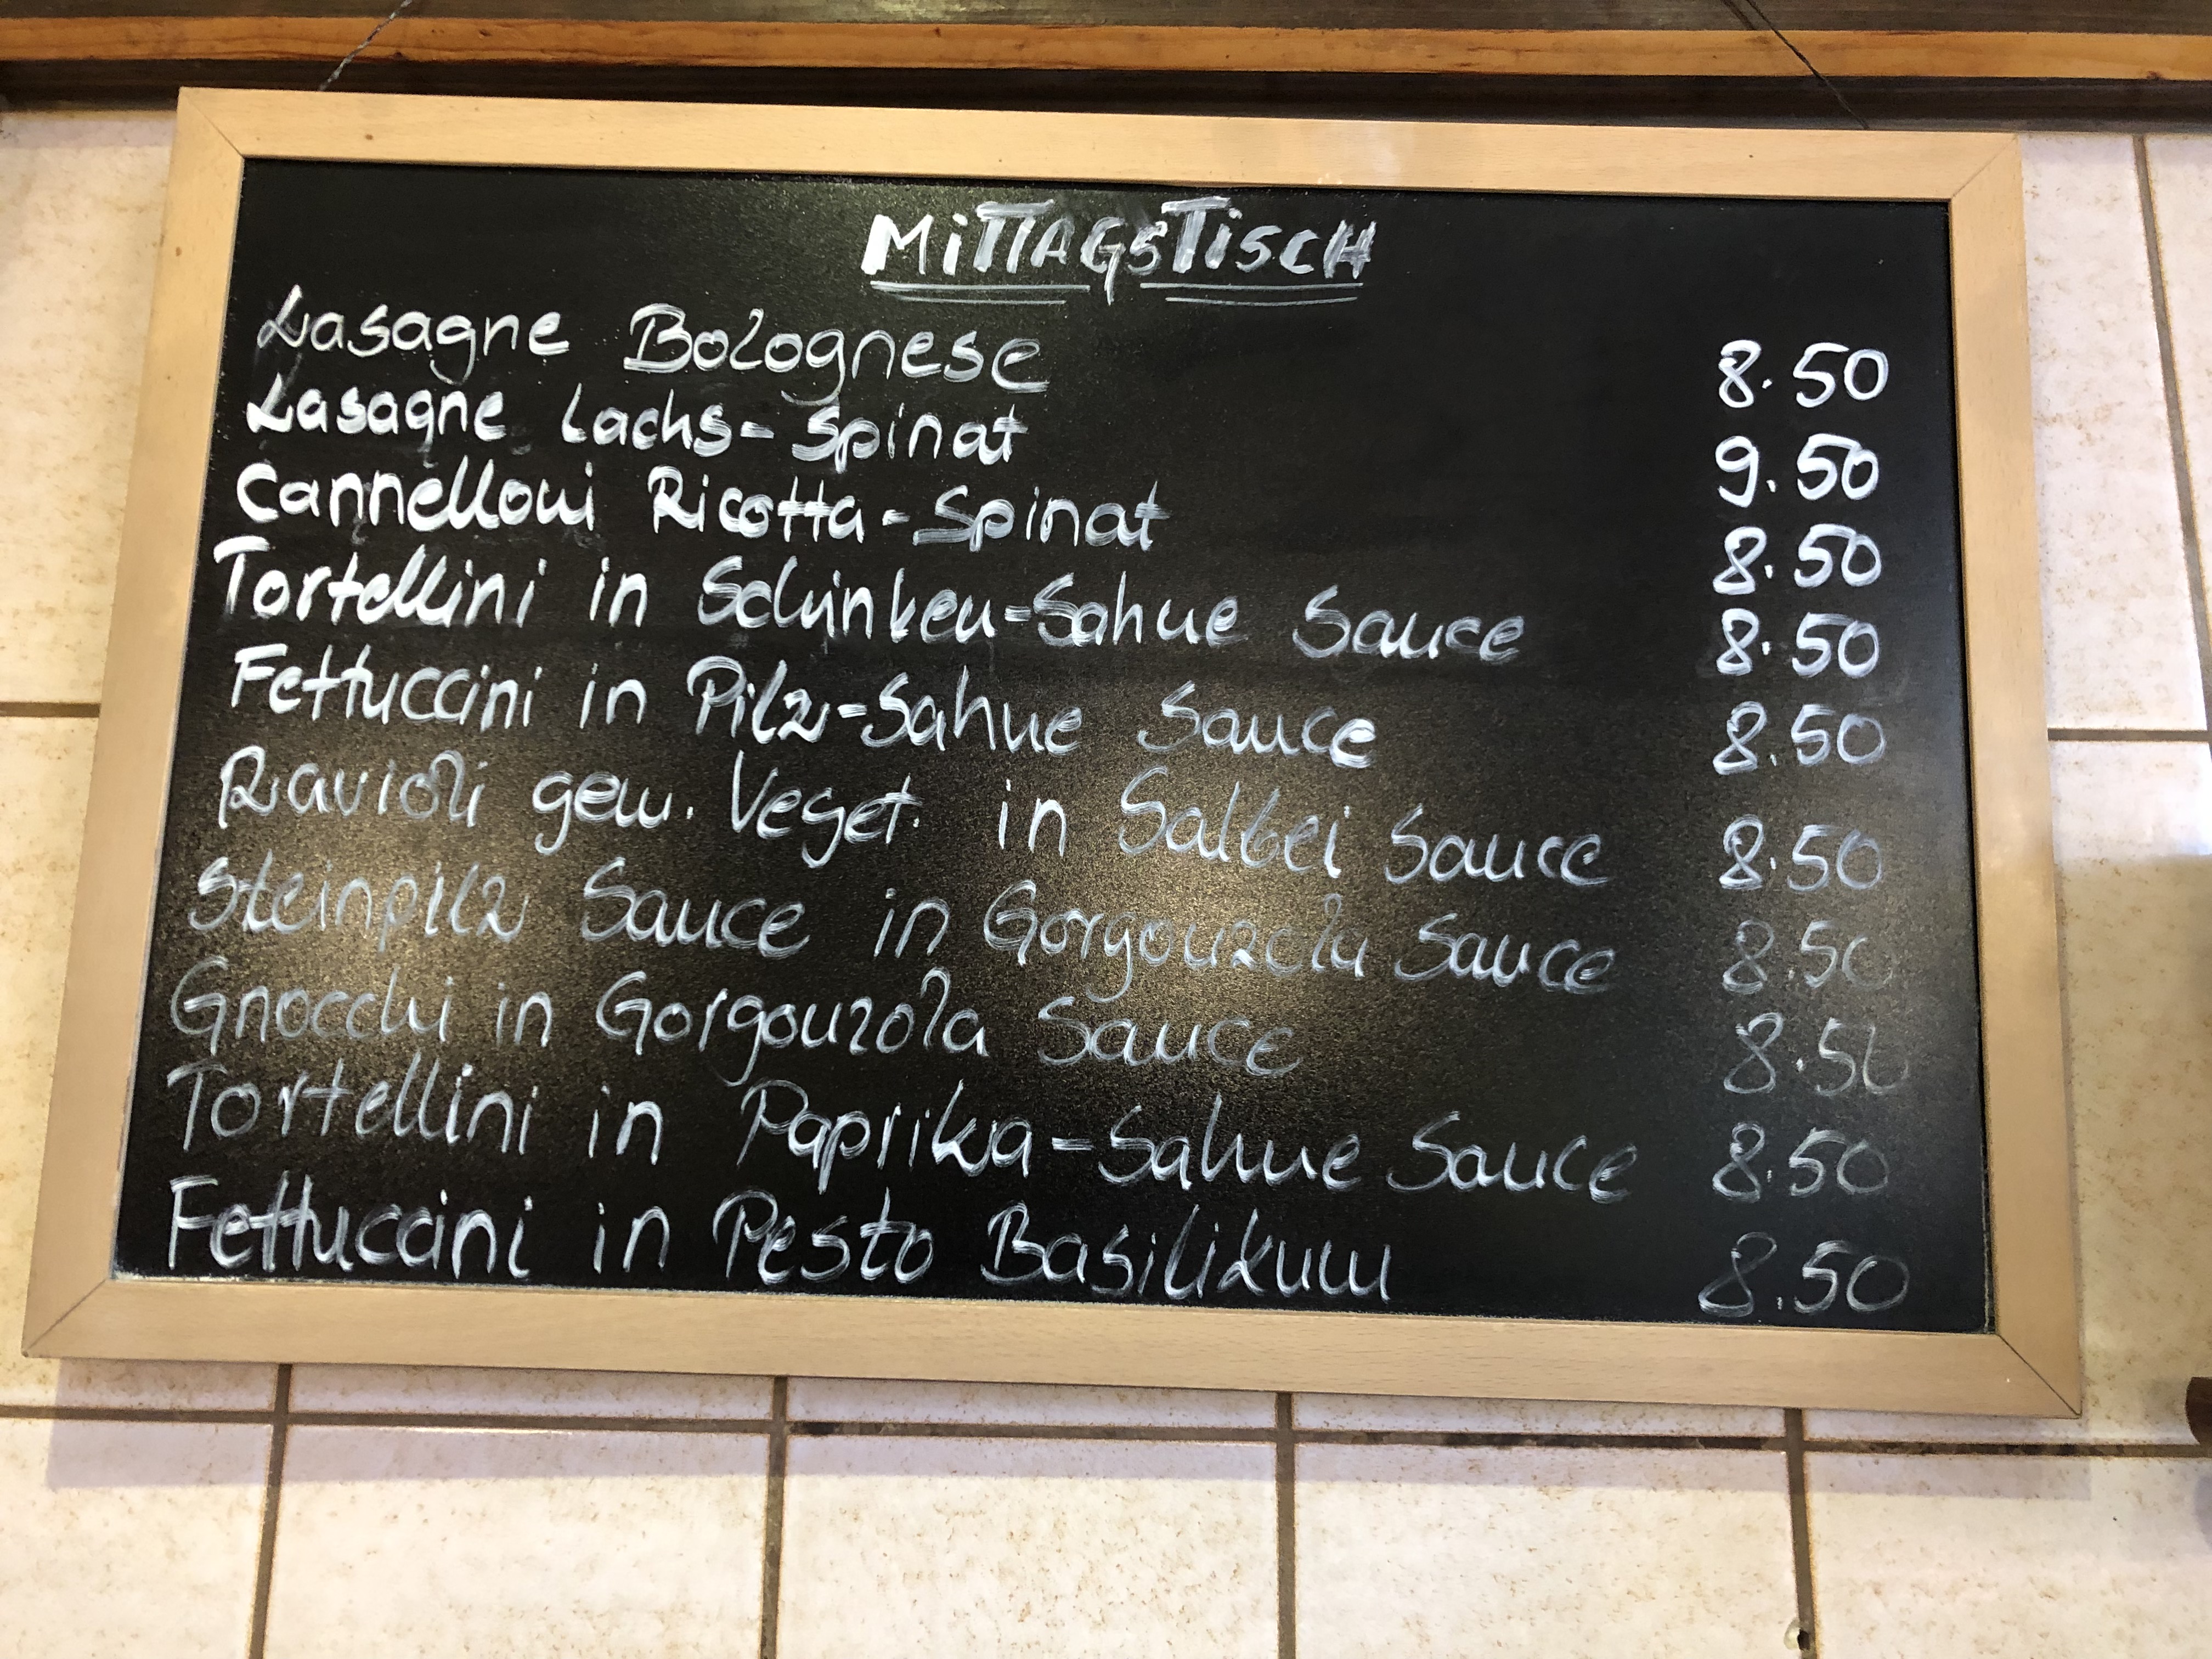 MiTTAGSTiSCH
Lasagne Bolognese 8.50
Lasagne Lachs-Spinat 9.50
Cannelloni Ricotta-Spinat 8.50
Tortellini in Schinken-Sahne Sauce 8.50
Fettuccini in Pilz-Sahne Sauce 8.50
Ravioli gem. Veget. in Salbei Sauce 8.50
Steinpilz Sauce in Gorgonzola Sauce 8.50
Gnocchi in Gorgonzola Sauce 8.50
Tortellini in Paprika-Sahne Sauce 8.50
Fettuccini in Pesto Basilikum 8.50